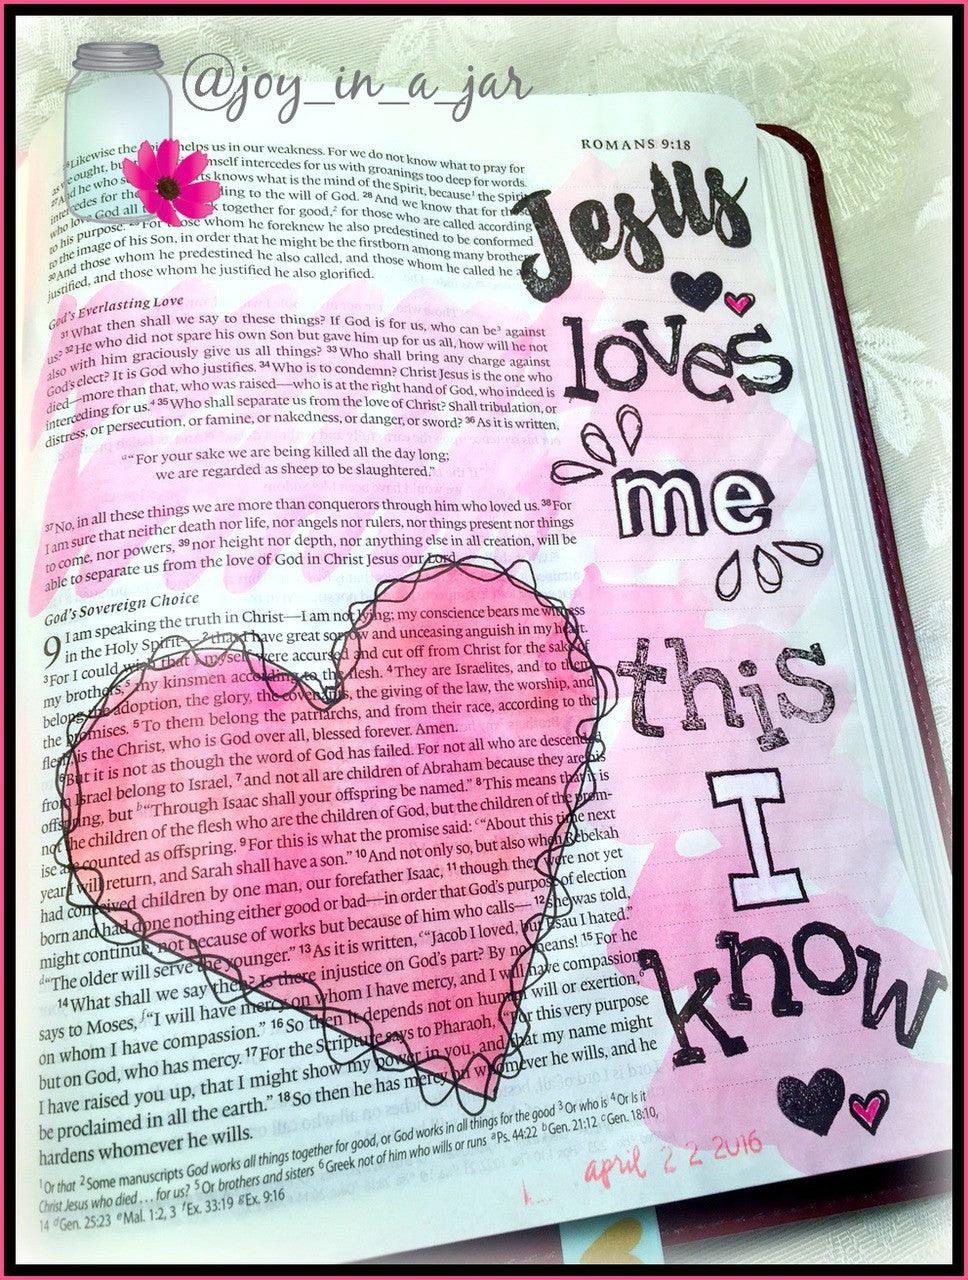 @joy_in_a_jar
ROMANS 9:18
26Likewise the helps us in our weakness. For we do not know what to pray for
as we ought, but himself intercedes for us with groanings too deep for words.
27And he who knows what is the mind of the Spirit, because1 the Spirit
intercedes for the according to the will of God. 28And we know that for those
who love God all together for good,2 for those who are called according
to his purpose. 29For those whom he foreknew he also predestined to be conformed
to the image of his Son, in order that he might be the firstborn among many brothers.
30And those whom he predestined he also called, and those whom he called he also
justified, and those whom he justified he also glorified.
God's Everlasting Love
31What then shall we say to these things? If God is for us, who can be3 against
us? 32He who did not spare his own Son but gave him up for us all, how will he not
also with him graciously give us all things? 33Who shall bring any charge against
God's elect? It is God who justifies. 34Who is to condemn? Christ Jesus is the one who
died—more than that, who was raised—who is at the right hand of God, who indeed is
interceding for us.4 35Who shall separate us from the love of Christ? Shall tribulation, or
distress, or persecution, or famine, or nakedness, or danger, or sword? 36As it is written,
a"For your sake we are being killed all the day long;
we are regarded as sheep to be slaughtered."
37No, in all these things we are more than conquerors through him who loved us. 38For
I am sure that neither death nor life, nor angels nor rulers, nor things present nor things
to come, nor powers, 39nor height nor depth, nor anything else in all creation, will be
able to separate us from the love of God in Christ Jesus our Lord.
God's Sovereign Choice
9 I am speaking the truth in Christ—I am not lying; my conscience bears me witness
in the Holy Spirit—2that I have great sorrow and unceasing anguish in my heart.
3For I could wish that I myself were accursed and cut off from Christ for the sake of
my brothers,5 my kinsmen according to the flesh. 4They are Israelites, and to them
belong the adoption, the glory, the covenants, the giving of the law, the worship, and
the promises. 5To them belong the patriarchs, and from their race, according to the
flesh, is the Christ, who is God over all, blessed forever. Amen.
6But it is not as though the word of God has failed. For not all who are descended
from Israel belong to Israel, 7and not all are children of Abraham because they are his
offspring, but b"Through Isaac shall your offspring be named." 8This means that it is
not the children of the flesh who are the children of God, but the children of the prom-
ise are counted as offspring. 9For this is what the promise said: c"About this time next
year I will return, and Sarah shall have a son." 10And not only so, but also when Rebekah
had conceived children by one man, our forefather Isaac, 11though they were not yet
born and had done nothing either good or bad—in order that God's purpose of election
might continue, not because of works but because of him who calls—12she was told,
d"The older will serve the younger." 13As it is written, e"Jacob I loved, but Esau I hated."
14What shall we say then? Is there injustice on God's part? By no means! 15For he
says to Moses, f"I will have mercy on whom I have mercy, and I will have compassion
on whom I have compassion." 16So then it depends not on human will or exertion,6
but on God, who has mercy. 17For the Scripture says to Pharaoh, g"For this very purpose
I have raised you up, that I might show my power in you, and that my name might
be proclaimed in all the earth." 18So then he has mercy on whomever he wills, and he
hardens whomever he wills.
1Or that 2Some manuscripts God works all things together for good, or God works in all things for the good 3Or who is 4Or Is it
Christ Jesus who died . . . for us? 5Or brothers and sisters 6Greek not of him who wills or runs aPs. 44:22 bGen. 21:12 cGen. 18:10,
14 dGen. 25:23 eMal. 1:2, 3 fEx. 33:19 gEx. 9:16
Jesus
loves
me
this
I
know
april 22 2016